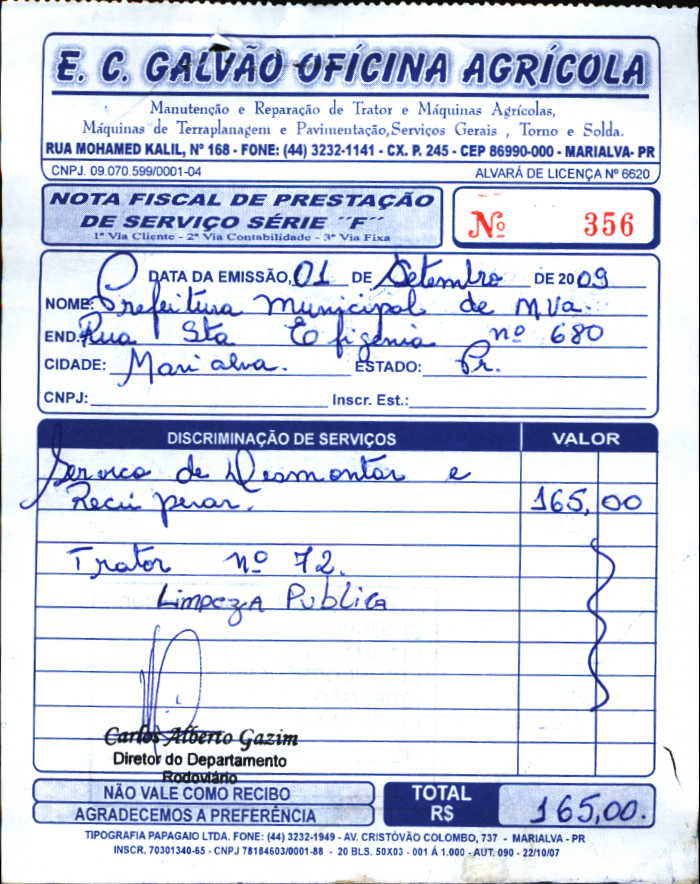 E. C. GALVÃO OFÍCINA AGRÍCOLA
Manutenção e Reparação de Trator e Máquinas Agrícolas,
Máquinas de Terraplanagem e Pavimentação,Serviços Gerais , Torno e Solda.
RUA MOHAMED KALIL, Nº 168 - FONE: (44) 3232-1141 - CX. P. 245 - CEP 86990-000 - MARIALVA- PR
CNPJ. 09.070.599/0001-04 ALVARÁ DE LICENÇA Nº 6620
NOTA FISCAL DE PRESTAÇÃO
DE SERVIÇO SÉRIE "F"
1ª Via Cliente - 2ª Via Contabilidade - 3ª Via Fixa
Nº 356
DATA DA EMISSÃO, 01 DE Setembro DE 2009
NOME: Prefeitura Municipal de Mva.
END. Rua Sta Efigenia nº 680
CIDADE: Marialva. ESTADO: Pr.
CNPJ: Inscr. Est.:
DISCRIMINAÇÃO DE SERVIÇOS VALOR
Servico de Desmontar e
Recuperar. 165,00
Trator nº 72.
Limpeza Publica
Carlos Alberto Gazim
Diretor do Departamento
Rodoviário
NÃO VALE COMO RECIBO
AGRADECEMOS A PREFERÊNCIA
TOTAL
R$ 165,00.
TIPOGRAFIA PAPAGAIO LTDA. FONE: (44) 3232-1949 - AV. CRISTÓVÃO COLOMBO, 737 - MARIALVA - PR
INSCR. 70301340-65 - CNPJ 78184603/0001-88 - 20 BLS. 50X03 - 001 Á 1.000 - AUT. 090 - 22/10/07